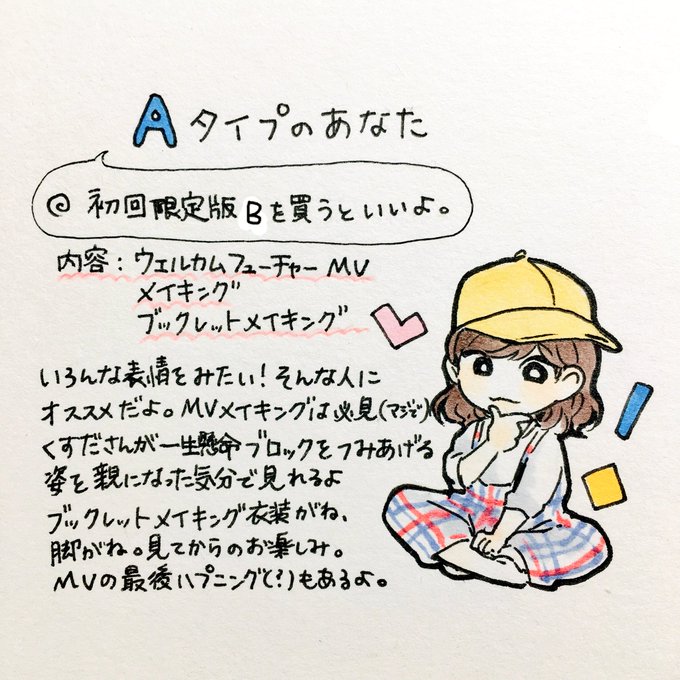 Aタイプのあなた
◎ 初回限定版Bを買うといいよ。
内容：ウェルカムフューチャーMV
メイキング
ブックレットメイキング
いろんな表情をみたい！そんな人に
オススメだよ。MVメイキングは必見(マジで)
くすださんが一生懸命ブロックをつみあげる
姿を親になった気分で見れるよ
ブックレットメイキング衣装がね、
脚がね。見てからのお楽しみ。
MVの最後ハプニング(?)もあるよ。